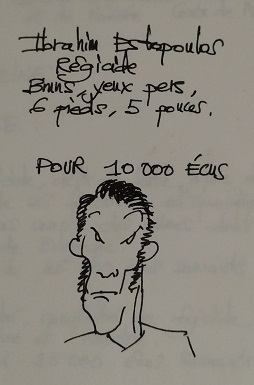 Ibrahim Estopoulos
Régicide
Bruns, yeux pers,
6 pieds, 5 pouces.
POUR 10 000 ÉCUS